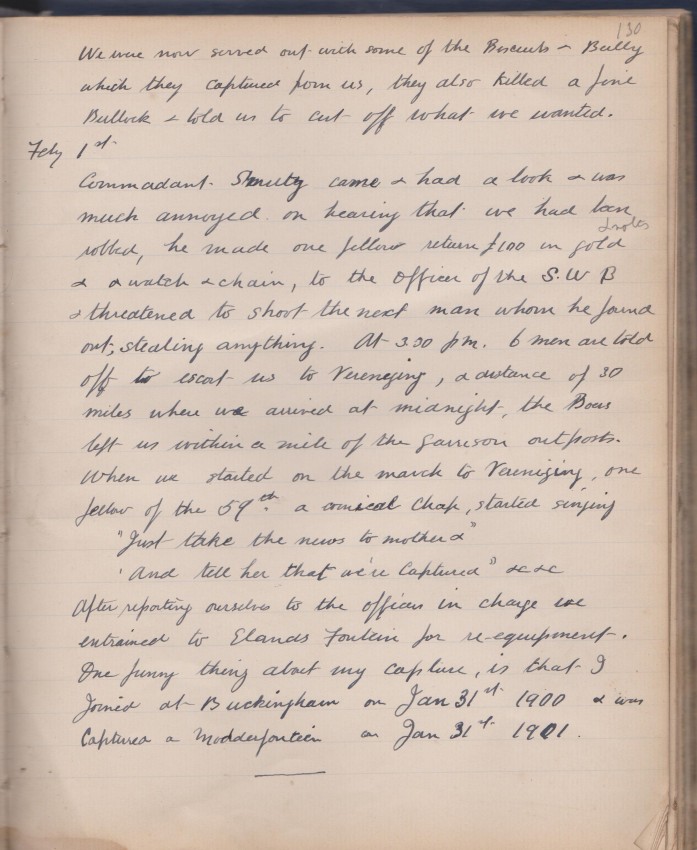 130
We were now served out with some of the Biscuits & Bully
which they captured from us, they also killed a fine
Bullock & told us to cut off what we wanted.
Feby 1st
Commadant Smuty came & had a look & was
much annoyed on hearing that we had been
robbed, he made one fellow return £100 in gold
& notes
& a watch & chain, to the Officer of the S.W B
& threatened to shoot the next man whom he found
out, stealing anything. At 3.30 pm. 6 men are told
off to escort us to Vereneging, a distance of 30
miles where we arrived at midnight, the Boers
left us within a mile of the garrison outposts.
When we started on the march to Verenizing, one
fellow of the 59th. a comical chap, started singing
"Just take the news to mother &"
'And tell her that we're Captured" &c &c
After reporting ourselves to the officer in charge we
entrained to Elands Fontein for re-equipment.
One funny thing about my capture, is that I
Joined at Buckingham on Jan 31st 1900 & was
Captured a Modderfontein on Jan 31st 1901.